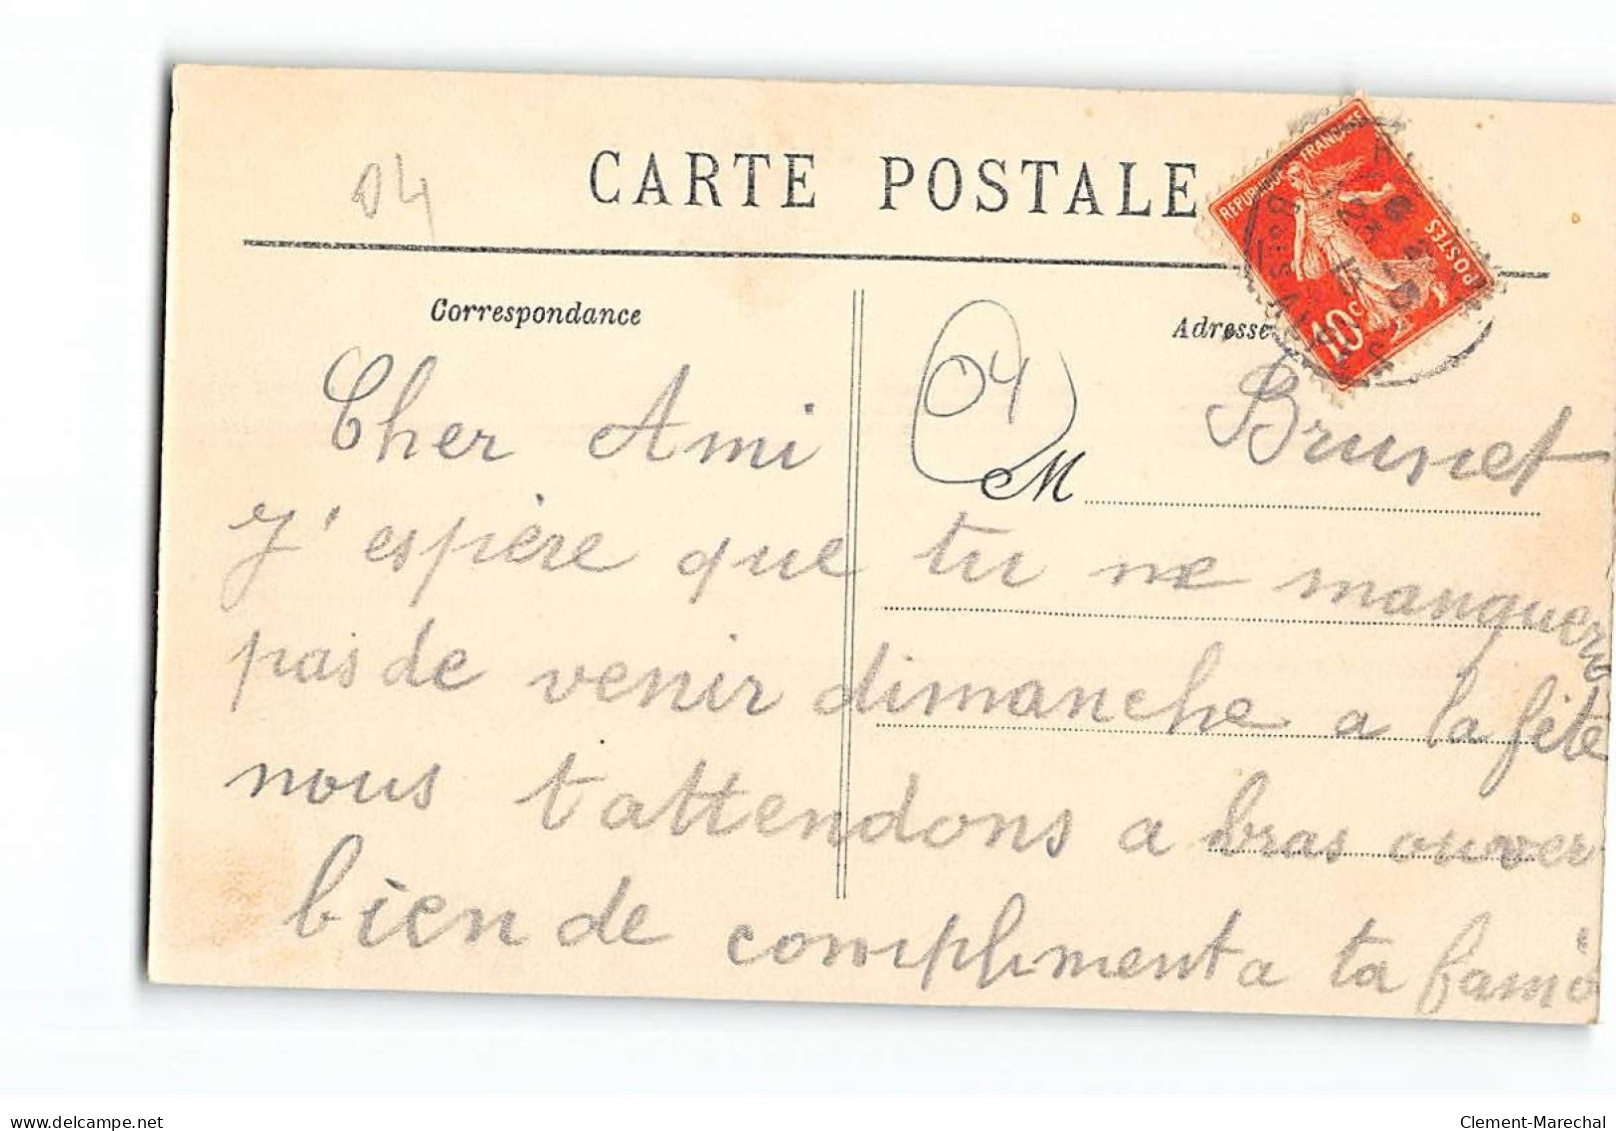 04
CARTE POSTALE
REPUBLIQUE FRANÇAISE
POSTES
10c
Correspondance
Adresse
04
M
Cher Ami Brunet
J'espère que tu ne manquera
pas de venir dimanche a la fête
nous t'attendons a bras ouver
bien de compliment a ta fami
delcampe.net
Clement-Marechal